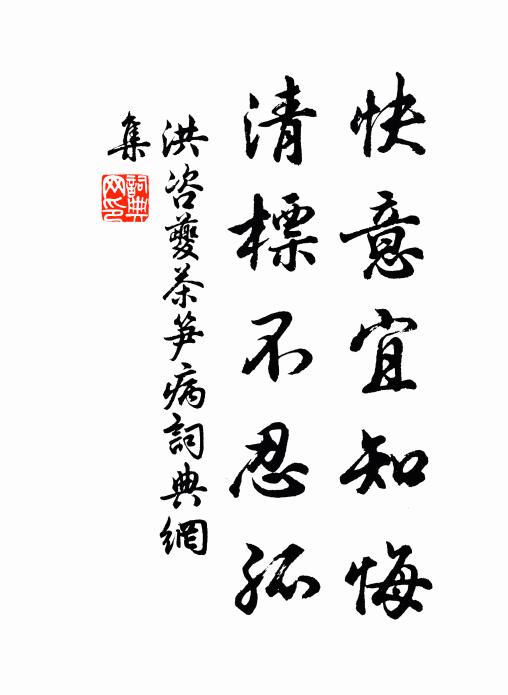 快意宜知悔
清標不忍孤
洪咨夔茶笋病詞典網
集
詞典網印